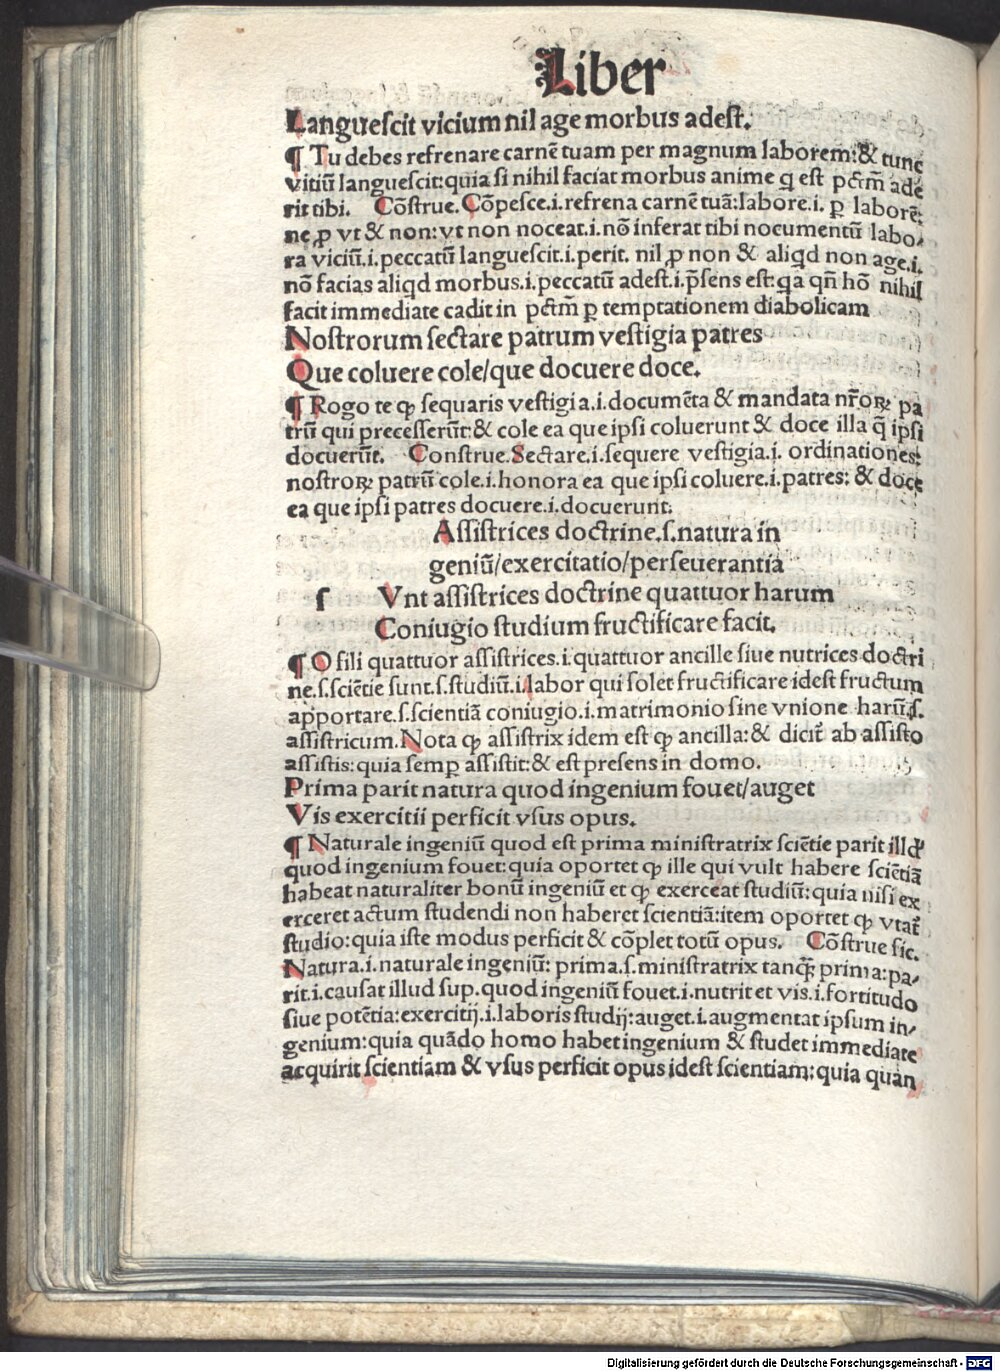 Liber
Langueſcit vicium nil age morbus adeſt.
¶ Tu debes refrenare carnē tuam per magnum laborem:& tunc
vitiū langueſcit:quia ſi nihil faciat morbus anime q̨ eſt pctm̄ ade
rit tibi. Cōſtrue.Cōpeſce.i.refrena carnē tuā:labore.i. ꝑ laborē:
ne,ꝓ vt & non:vt non noceat.i.nō inferat tibi nocumentū labo⸗
ra viciū.i.peccatū langueſcit.i.perit. nil,ꝓ non & aliqd non age.i.
nō facias aliqd morbus.i.peccatū adeſt.i.p̄ſens eſt:qa qn̄ hō nihil
facit immediate cadit in pctm̄ ꝑ temptationem diabolicam
Noſtrorum ſectare patrum veſtigia patres
Que coluere cole/que docuere doce.
¶ Rogo te ꝙ ſequaris veſtigia.i.documēta & mandata nr̄oꝝ pa
trū qui preceſſerūt:& cole ea que ipſi coluerunt & doce illa q̄ ipſi
docuerūt. Conſtrue.Sectare.i.ſequere veſtigia.i. ordinationes:
noſtroꝝ patrū cole.i.honora ea que ipſi coluere.i.patres: & doce
ea que ipſi patres docuere.i.docuerunt.
Aſſiſtrices doctrine.ſ.natura in
geniū/exercitatio/perſeuerantia
ſ Vnt aſſiſtrices doctrine quattuor harum
Coniugio ſtudium fructificare facit.
¶ O fili quattuor aſſiſtrices.i.quattuor ancille ſiue nutrices doctri
ne.ſ.ſciētie ſunt.ſ.ſtudiū.i.labor qui ſolet fructificare ideſt fructum
apportare.ſ.ſcientiā coniugio.i.matrimonio ſine vnione harū.ſ.
aſſiſtricum.Nota ꝙ aſſiſtrix idem eſt ꝙ ancilla:& dicit̄ ab aſſiſto
aſſiſtis:quia ſemꝑ aſſiſtit:& eſt preſens in domo.
Prima parit natura quod ingenium fouet/auget
Vis exercitii perficit vſus opus.
¶ Naturale ingeniū quod eſt prima miniſtratrix ſciētie parit illđ
quod ingenium fouet:quia oportet ꝙ ille qui vult habere ſciētiā
habeat naturaliter bonū ingeniū et ꝙ exerceat ſtudiū:quia niſi ex
erceret actum ſtudendi non haberet ſcientiā:item oportet ꝙ vtat̄
ſtudio:quia iſte modus perficit & cōplet totū opus. Cōſtrue ſic.
Natura.i.naturale ingeniū: prima.ſ.miniſtratrix tanꝗ̄ prima:pa⸗
rit.i.cauſat illud ſup.quod ingeniū fouet.i.nutrit et vis.i.fortitudo
ſiue potētia:exercitij.i.laboris ſtudij:auget.i.augmentat ipſum in⸗
genium:quia quādo homo habet ingenium & ſtudet immediate
acquirit ſcientiam & vſus perficit opus ideſt ſcientiam:quia quan
Digitalisierung gefördert durch die Deutsche Forschungsgemeinschaft - DFG